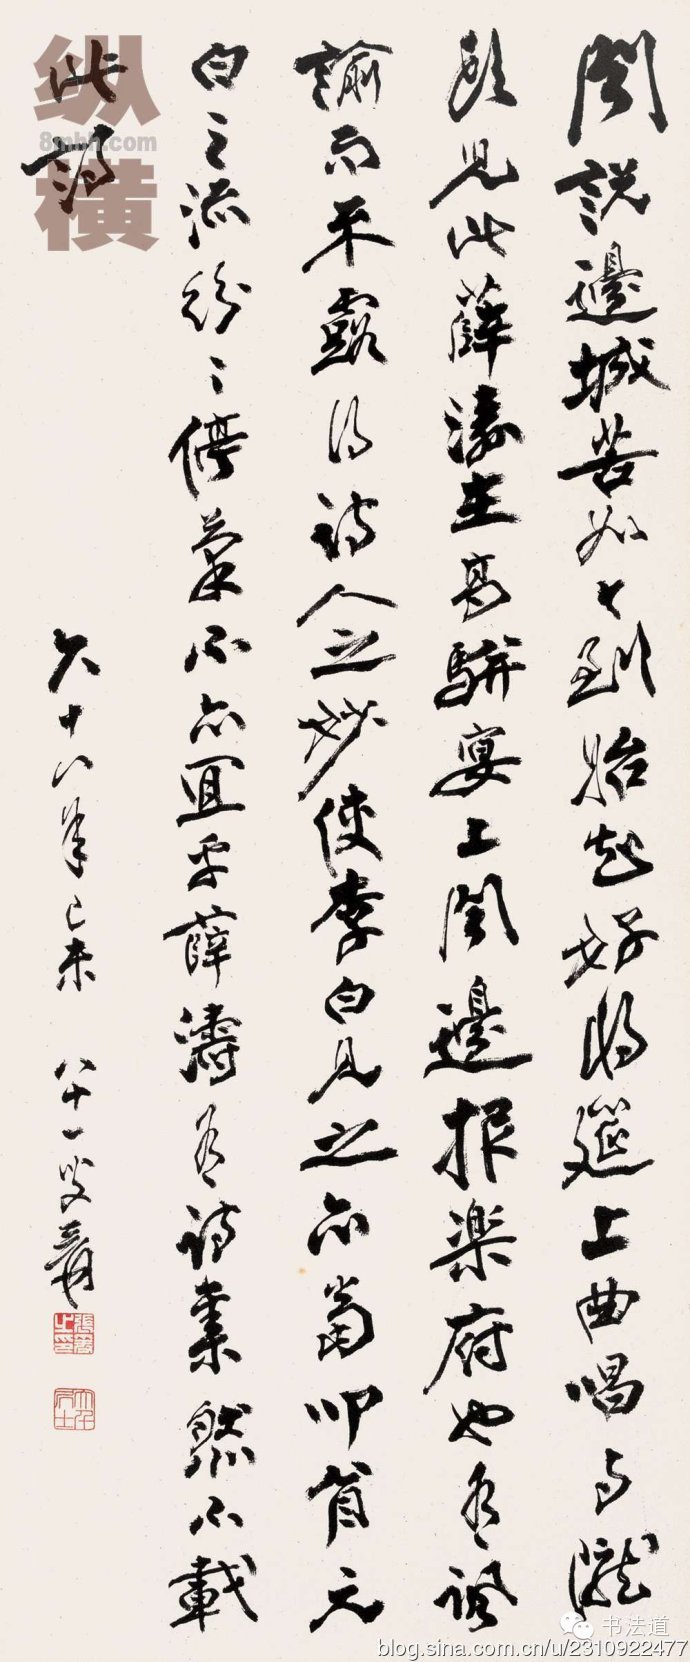 聞說邊城苦如今到始知好將筵上曲唱与隴
頭兒此薛濤在高駢宴上聞邊报楽府也有諷
諭而不露得詩人之妙使李白見之亦當叩首元
白之流紛〻停筆不亦宜乎薛濤有詩集然不載
此詩
六十八年己未 八十一叟爰
張爰之印
大千居士
纵横
8mhh.com
书法道
blog.sina.com.cn/u/2310922477